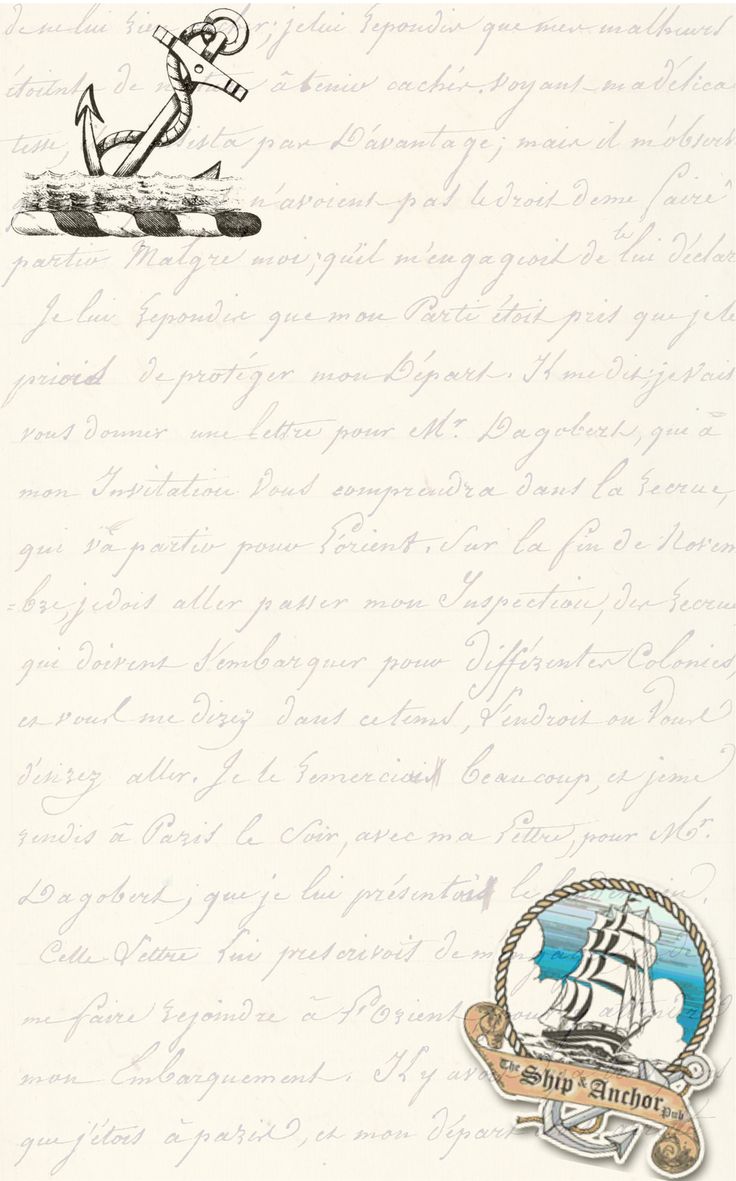 de ne lui rien ; je lui repondis que mes malheurs
étoient de à tenir cachés. voyant ma délica
tesse, par Davantage ; mais il m'observ
n'avoient pas le droit de me faire
partir Malgre moi ; qu'il m'engagioit de le lui déclar
Je lui repondis que mon Parti étoit pris que je le
priois de protéger mon Départ. Il me dit ; je Vais
vous donner une lettre pour Mr. Dagobert, qui à
mon Invitation Vous comprendra dans la recrue,
qui va partir pour L'orient. Sur la fin de Novem
=bre, je dois aller passer mon Inspection, des recrue
qui doivent s'embarquer pour différentes Colonies,
et vous me direz dans ce tems, L'endroit ou Vous
désirez aller. Je le remerciois beaucoup, et je me
rendis à Paris le Soir, avec ma Lettre, pour Mr.
Dagobert ; que je lui présentois le
Cette Lettre Lui prescrivoit de
me faire rejoindre à L'Orient
mon Embarquement. Il y avoi
que j'étois à paris, et mon départ
The Ship & Anchor Pub